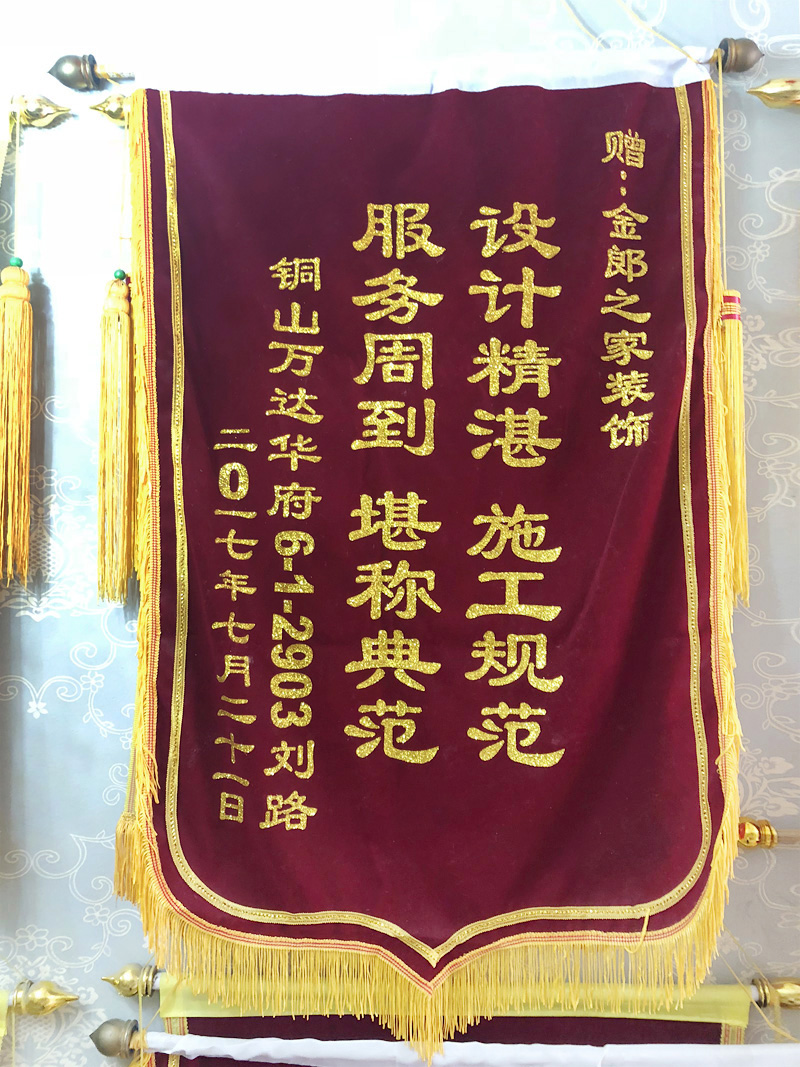 赠:金郎之家装饰
设计精湛 施工规范
服务周到 堪称典范
铜山万达华府6-1-2903刘路
二0一七年七月二十一日